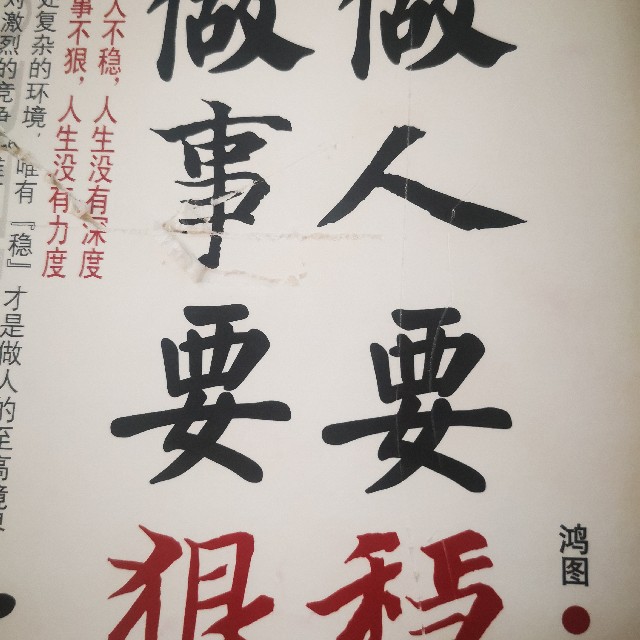 鸿图
做人要稳
做事要狠
人不稳，人生没有深度
事不狠，人生没有力度
处复杂的环境，唯有『稳』才是做人的至高境界
对激烈的竞争